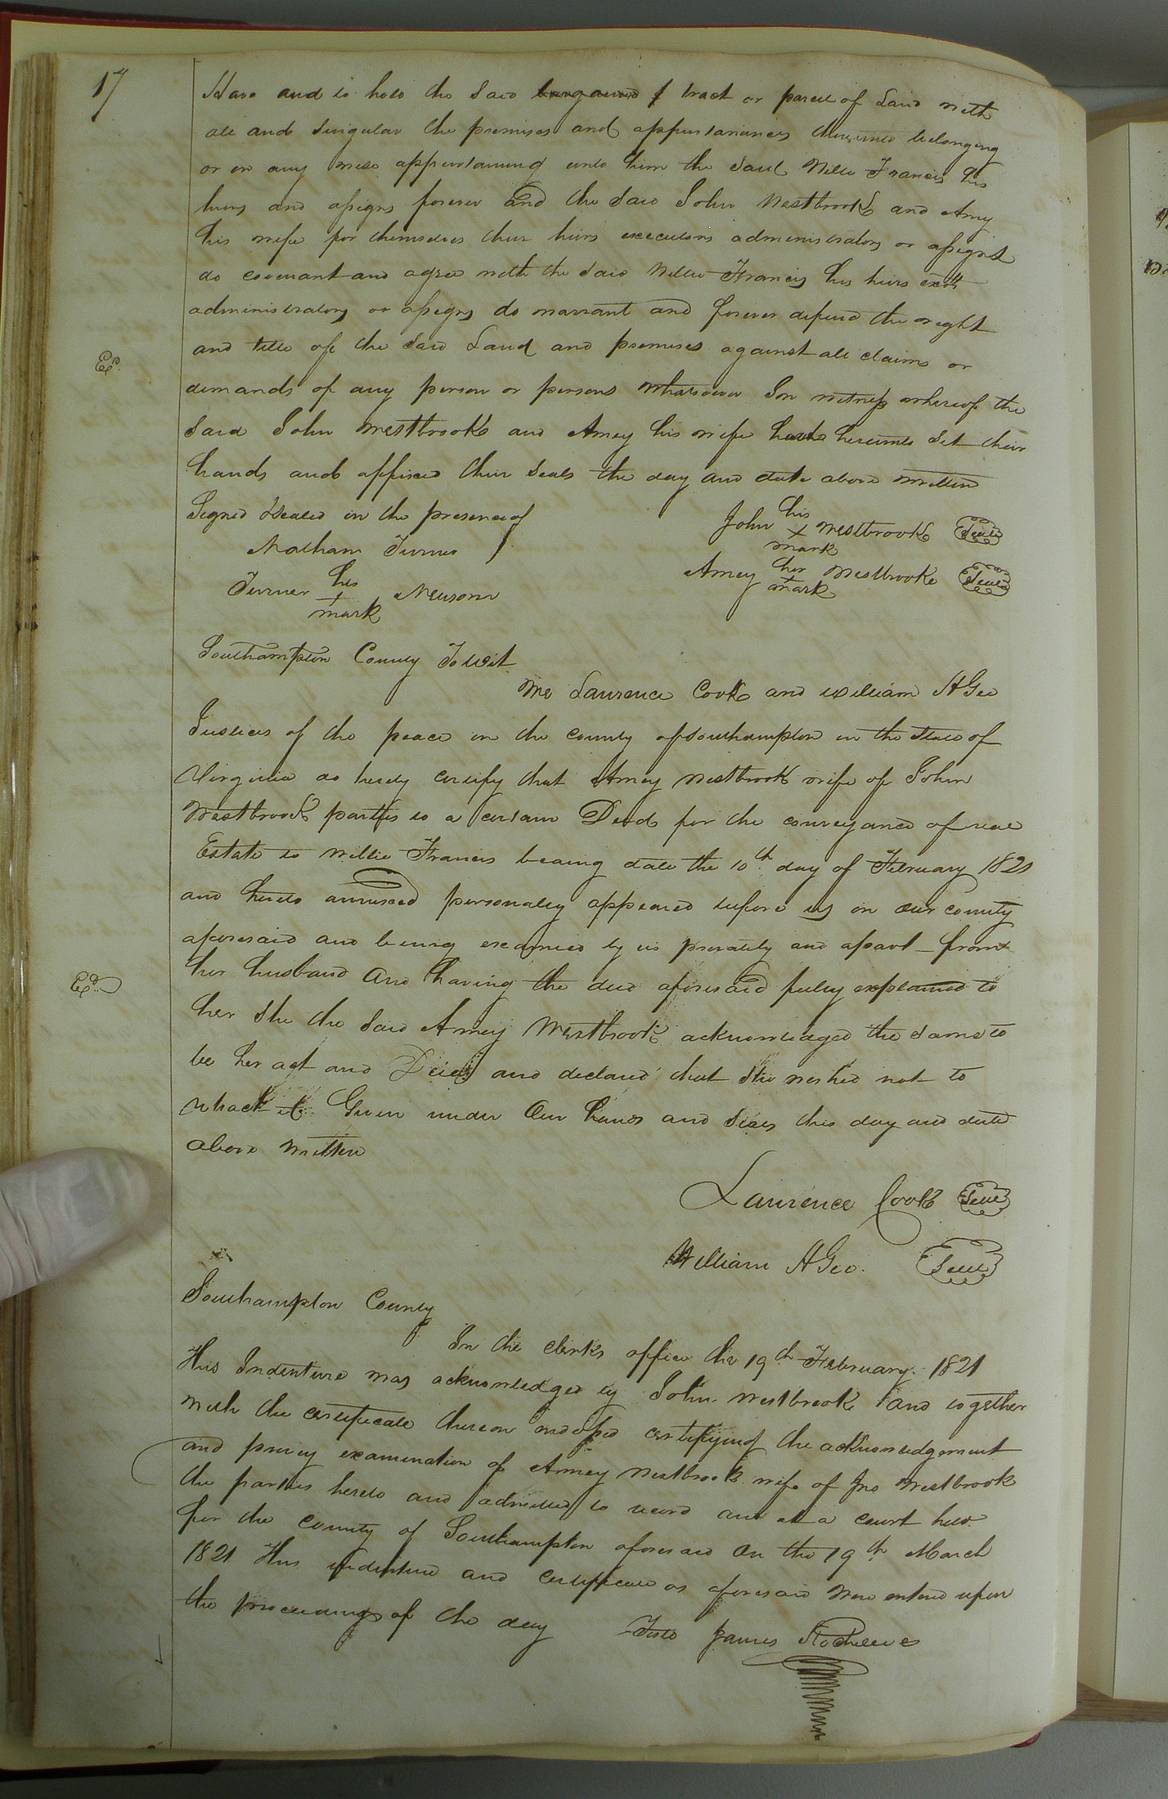 17
Have and to hold the said bargained tract or parcel of Land with
all and singular the premises and appurtanances thereunto belonging
or in any wise appurtaining unto him the said Willie Francis his
heirs and assigns forever And the said John Westbrook and Amey
his wife for themselves their heirs executors administrators or assigns
do covenant and agree with the said Willie Francis his heirs exors
administrators or assigns do warrant and forever defend the right
and title of the said Land and premises against all claims or
Ex
demands of any person or persons whatsoever In witness whereof the
said John Westbrook and Amey his wife have hereunto set their
hands and affixed their seals the day and date above written
Signed Sealed in the presence of
John his Westbrook Seal
X
mark
Nathan Turner
Amey her Westbrook Seal
+
mark
Turner his Newsom
+
mark
Southampton County To wit
We Laurence Cook and William A Geo
Justices of the peace in the county of Southampton in the State of
Virginia do hereby certify that Amey Westbrook wife of John
Westbrook parties to a certain Deed for the conveyance of real
Estate to Willie Francis bearing date the 10th day of February 1821
and hereto annexed personally appeared before us in our county
aforesaid and being examined by us privately and apart from
her husband And having the deed aforesaid fully explained to
Exd
her She the said Amey Westbrook acknowledged the same to
be her act and Deed and declared that she wished not to
retract it Given under Our hands and seals this day and date
above written
Laurence Cook Seal
William A Geo. Seal
Southampton County
In the clerks office the 19th February 1821
This Indenture was acknowledged by John Westbrook and together
with the certificate thereon indorsed certifying the acknowledgement
and privy examination of Amey Westbrook wife of Jno Westbrook
the parties hereto and admitted to record and at a court held
for the county of Southampton aforesaid On the 19th March
1821 This indenture and certificate as aforesaid were entered upon
the proceedings of the day Teste James Rochelle C